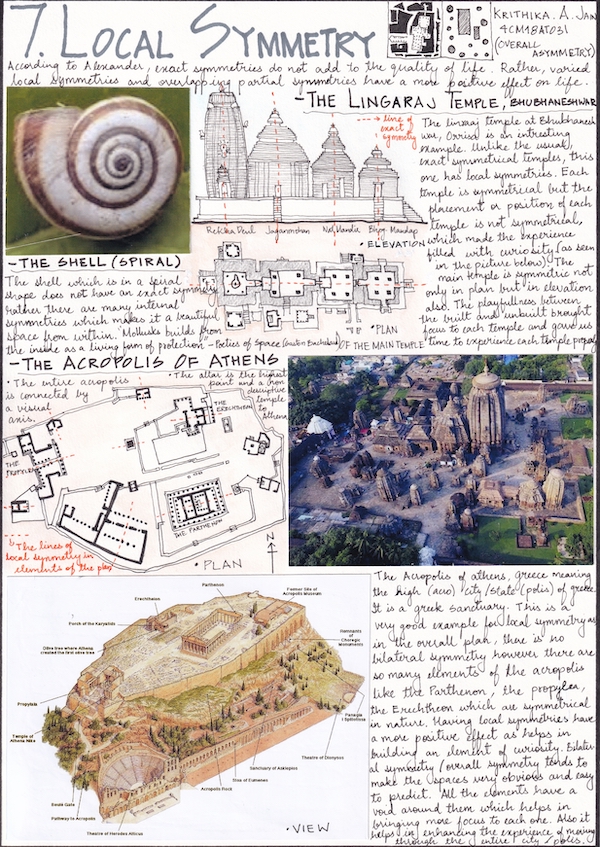 7. LOCAL SYMMETRY
KRITHIKA. A. JAN
4CM18AT031
(OVERALL
ASYMMETRY)
According to Alexander, exact symmetries do not add to the quality of life. Rather, varied
local symmetries and overlapping partial symmetries have a more positive effect on life.
-THE LINGARAJ TEMPLE, BHUBHANESHWAR
line of
exact
symmetry
Rekha Deul Jagamohan Nat Mandir Bhog Mandap
• ELEVATION
The lingraj temple at Bhubhanesh
war, Orrisa is an intresting
example. Unlike the usual,
exact symmetrical temples, this
one has local symmetries. Each
temple is symmetrical but the
placement or position of each
temple is not symmetrical,
which made the experience
filled with curiosity (as seen
in the picture below). The
main temple is symmetric not
only in plan but in elevation
also. The playfulness between
the built and unbuilt brought
focus to each temple and gave us
time to experience each temple properly
• PLAN
OF THE MAIN TEMPLE
-THE SHELL (SPIRAL)
The shell which is in a spiral
shape does not have an exact symmetry
rather there are many internal
symmetries which makes it a beautiful
space from within. "Mollusks builds from
the inside as a living form of protection" - Poetics of Space
-THE ACROPOLIS OF ATHENS
• The entire acropolis
is connected by
a visual
axis.
• The altar is the highest
point and a
descriptive
temple
to
Athena
THE
ERECHTHEON
THE
PROPYLEA
THE PARTHENON
• PLAN
N
"The lines of
local symmetry in
elements of the plan"
The Acropolis of athens, greece meaning
the high (acro) city/state (polis) of greece.
It is a greek sanctuary. This is a
very good example for local symmetry as
in the overall plan, there is no
bilateral symmetry however there are
so many elements of the acropolis
like the Parthenon, the propylea,
the Erechtheon which are symmetrical
in nature. Having local symmetries have
a more positive effect as helps in
building an element of curiosity. Bilater
al symmetry/overall symmetry tends to
make the spaces very obvious and easy
to predict. All the elements have a
void around them which helps in
bringing more focus to each one. Also it
helps in enhancing the experience of moving
through the entire city/polis.
Parthenon
Erechtheion
Former Site of
Acropolis Museum
Porch of the Karyatids
Remnants
of
Choregic
Monuments
Olive tree where Athena
created the first olive tree
Propylaia
Panagia
i Spiliotissa
Temple of
Athena Nike
Theatre of Dionysos
Sanctuary of Asklepios
Stoa of Eumenes
Acropolis Rock
Beulé Gate
Pathway to Acropolis
Theatre of Herodes Atticus
• VIEW